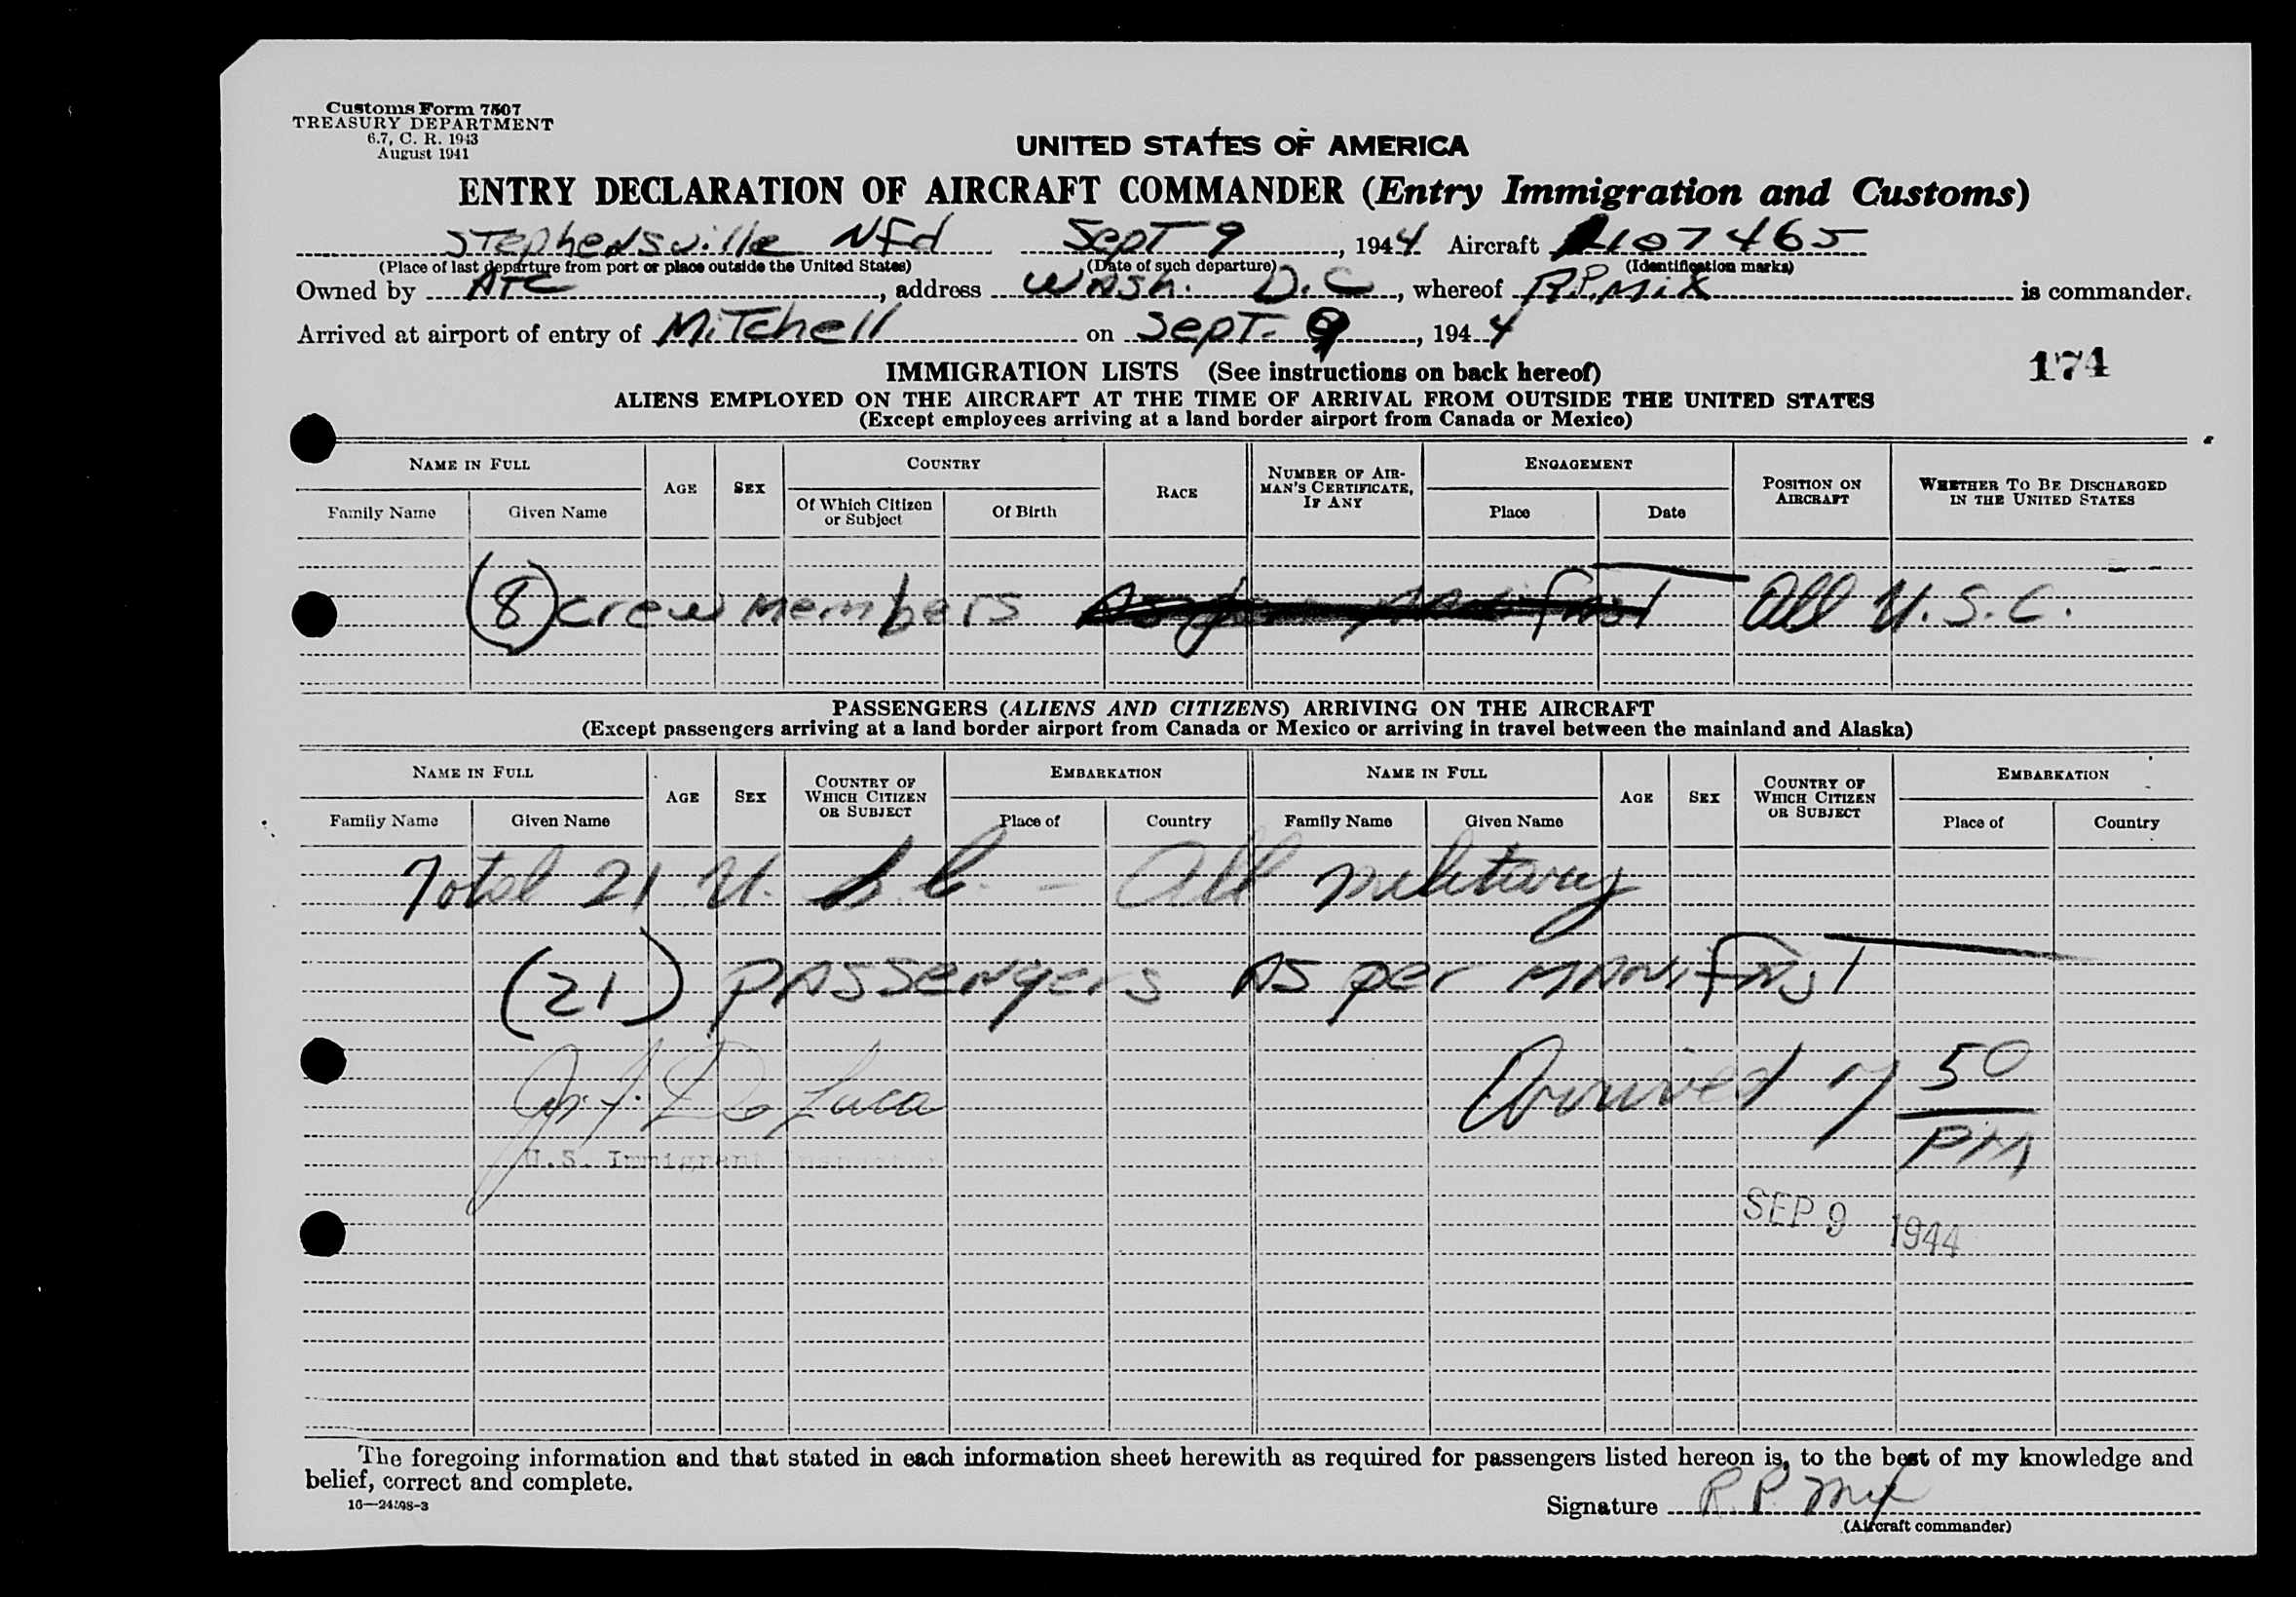 Customs Form 7507
TREASURY DEPARTMENT
6.7, C. R. 1943
August 1941
UNITED STATES OF AMERICA
ENTRY DECLARATION OF AIRCRAFT COMMANDER (Entry Immigration and Customs)
Stephensville Nfd Sept 9, 1944 Aircraft 107465
(Place of last departure from port or place outside the United States) (Date of such departure) (Identification marks)
Owned by ATC, address Wash. D.C, whereof R.P. Mix is commander.
Arrived at airport of entry of Mitchell on Sept. 9, 1944
174
IMMIGRATION LISTS (See instructions on back hereof)
ALIENS EMPLOYED ON THE AIRCRAFT AT THE TIME OF ARRIVAL FROM OUTSIDE THE UNITED STATES
(Except employees arriving at a land border airport from Canada or Mexico)
NAME IN FULL AGE SEX COUNTRY RACE NUMBER OF AIRMAN'S CERTIFICATE, IF ANY ENGAGEMENT POSITION ON AIRCRAFT WHETHER TO BE DISCHARGED IN THE UNITED STATES
Family Name Given Name Of Which Citizen or Subject Of Birth Place Date
(8) crew members As per manifest All U.S.C.
PASSENGERS (ALIENS AND CITIZENS) ARRIVING ON THE AIRCRAFT
(Except passengers arriving at a land border airport from Canada or Mexico or arriving in travel between the mainland and Alaska)
NAME IN FULL AGE SEX COUNTRY OF WHICH CITIZEN OR SUBJECT EMBARKATION NAME IN FULL AGE SEX COUNTRY OF WHICH CITIZEN OR SUBJECT EMBARKATION
Family Name Given Name Place of Country Family Name Given Name Place of Country
Total 21 U.S.C. - All military
(21) passengers As per manifest
Arrived 7 50 PM
De Luca
U.S. Immigrant Inspector
SEP 9 1944
The foregoing information and that stated in each information sheet herewith as required for passengers listed hereon is, to the best of my knowledge and
belief, correct and complete.
16—24598-3
Signature R. P. Mix
(Aircraft commander)